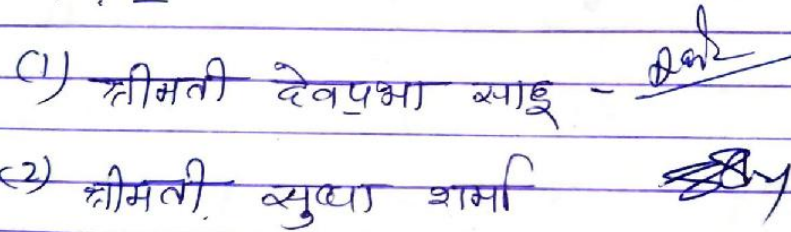 (1) श्रीमती देवप्रभा साहू -
(2) श्रीमती सुधा शर्मा